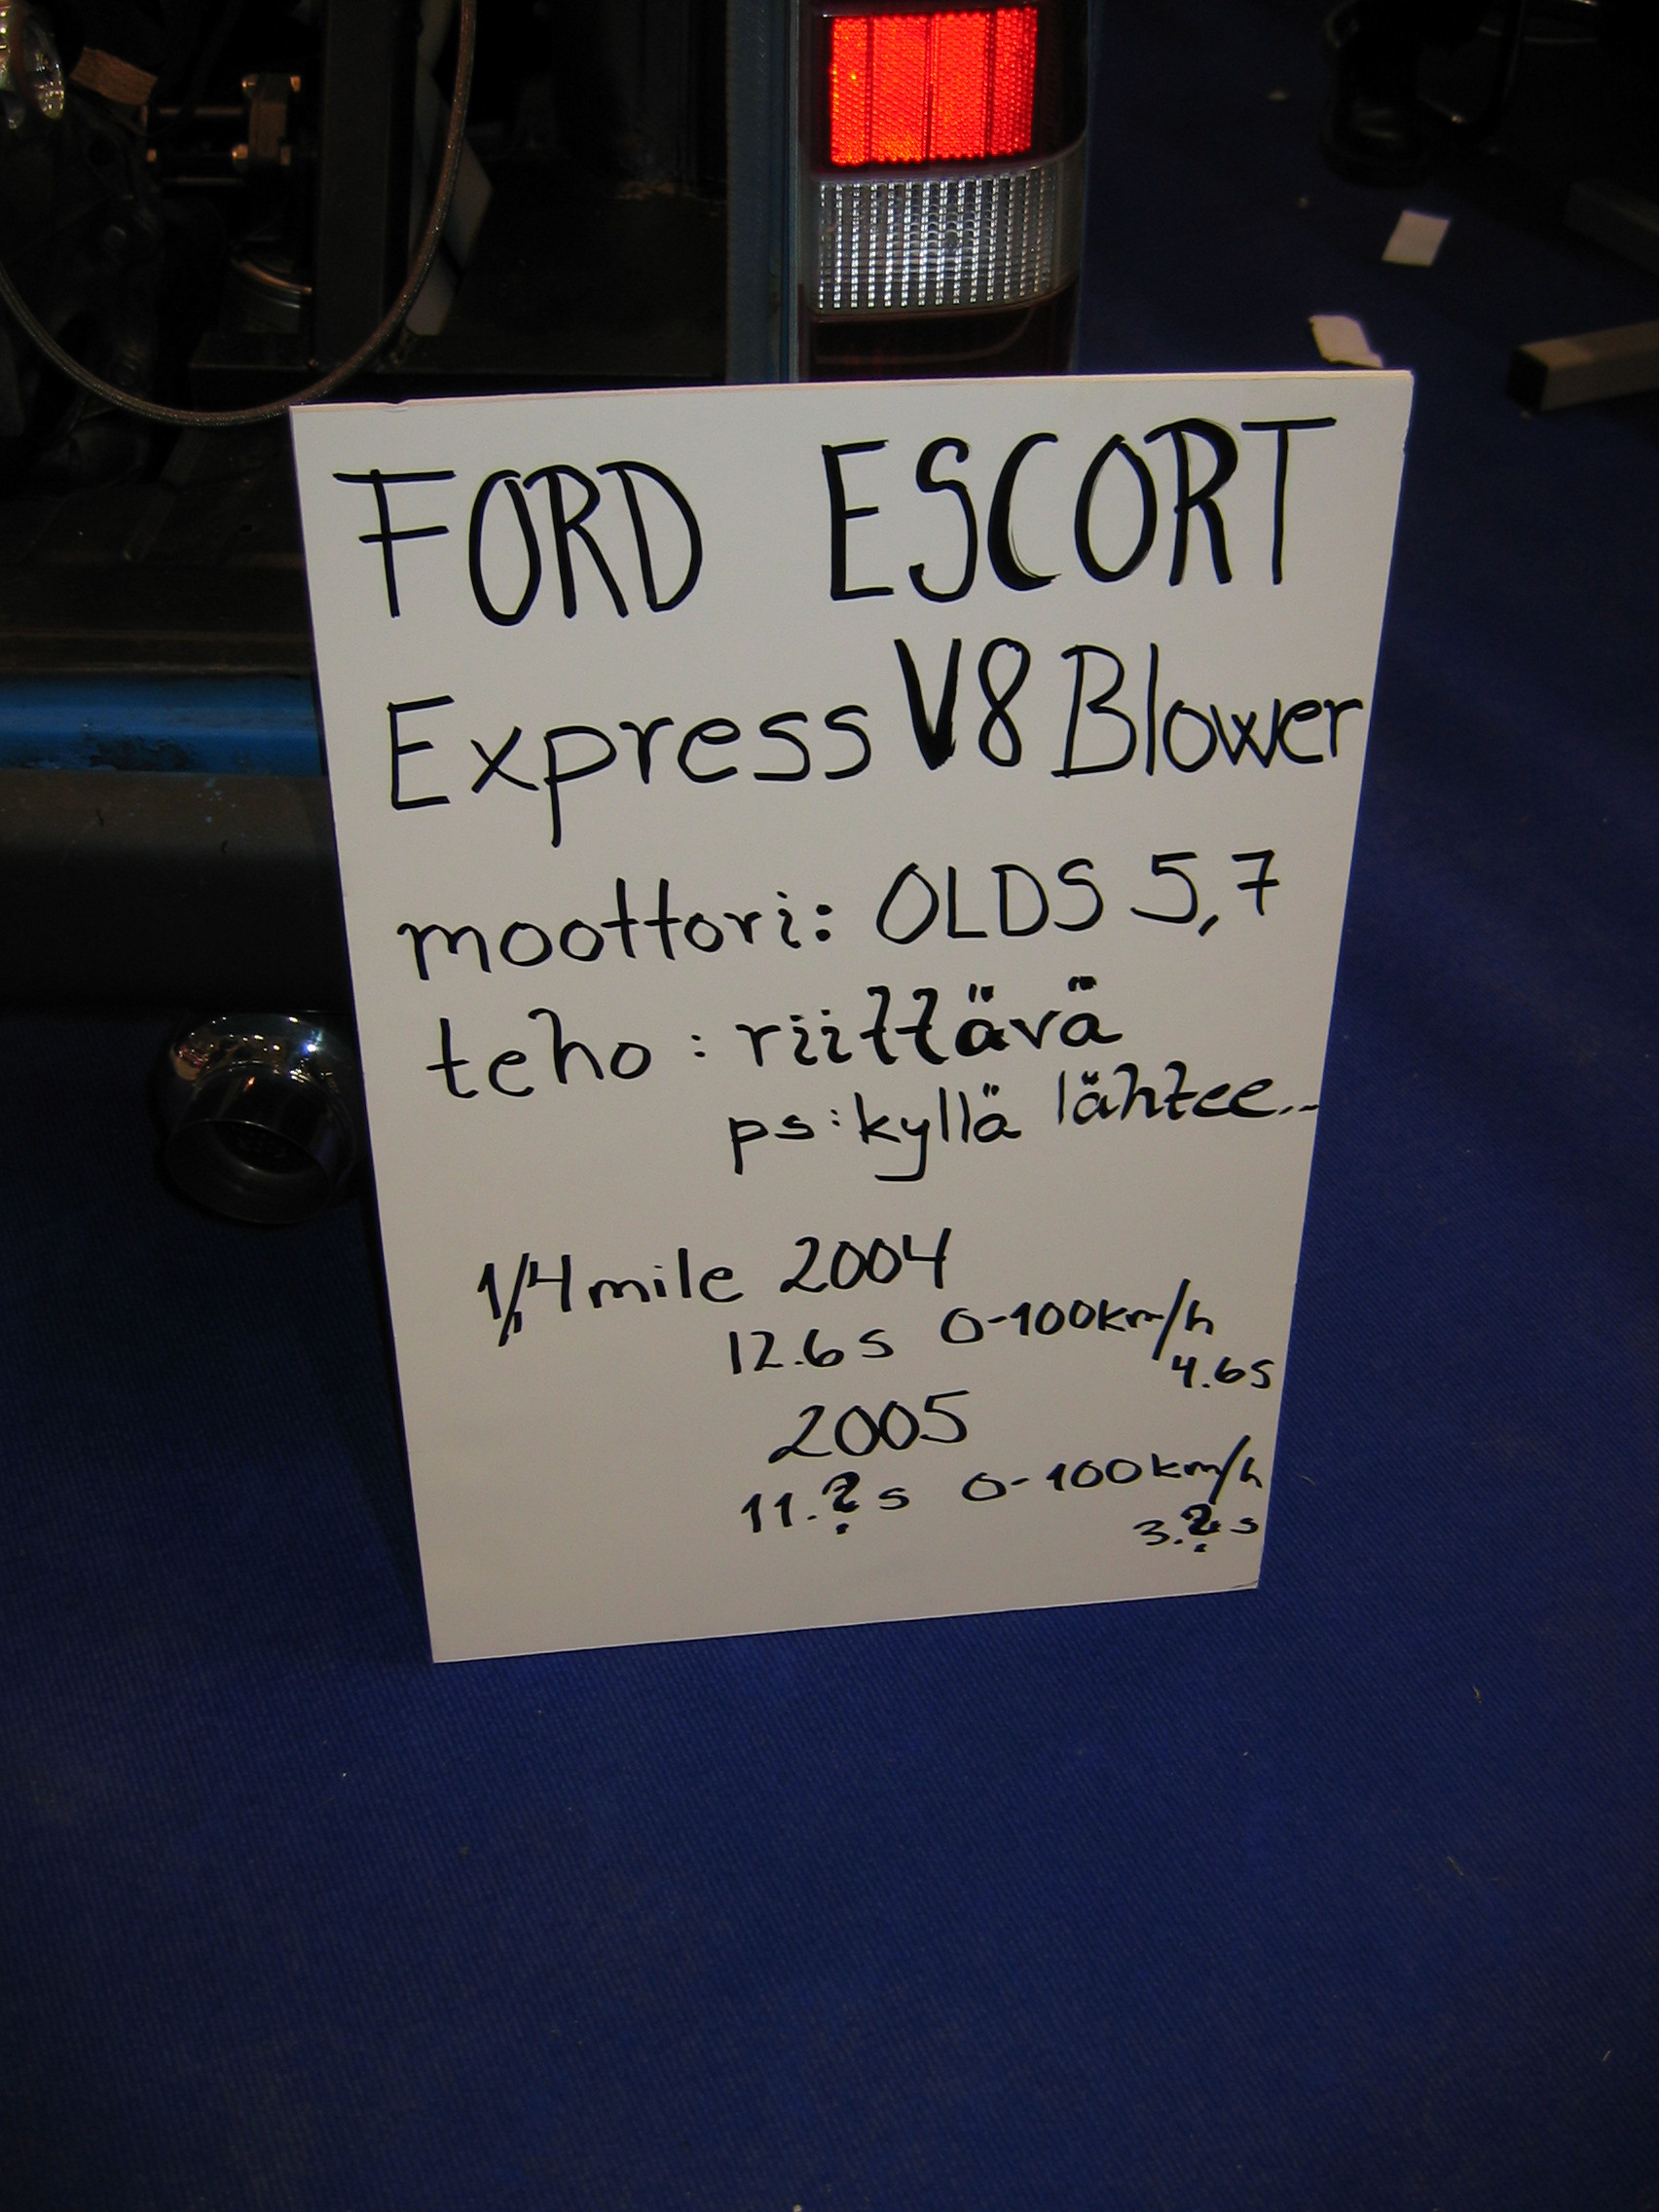 FORD ESCORT
Express V8 Blower
moottori: OLDS 5,7
teho : riittävä
ps: kyllä lähtee...
1/4 mile 2004
12.6 s 0-100km/h
4.6s
2005
11.? s 0-100km/h
3.? s